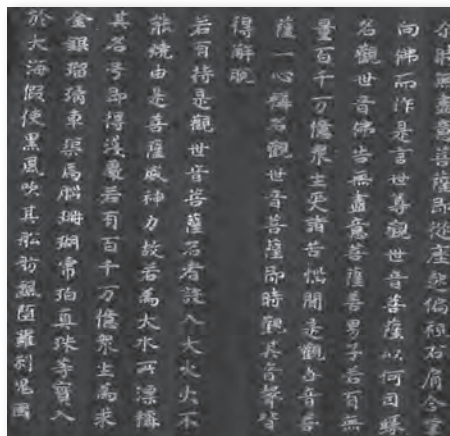 尒時無盡意菩薩即從座起偏袒右肩合掌
向佛而作是言世尊觀世音菩薩以何因緣
名觀世音佛告無盡意菩薩善男子若有無
量百千万億衆生受諸苦惱聞是觀世音菩
薩一心稱名觀世音菩薩即時觀其音聲皆
得解脫
若有持是觀世音菩薩名者設入大火火不
能燒由是菩薩威神力故若為大水所漂稱
其名号即得淺處若有百千万億衆生為求
金銀瑠璃車渠馬腦珊瑚虎珀真珠等寶入
於大海假使黑風吹其舩舫飄墮羅剎鬼國